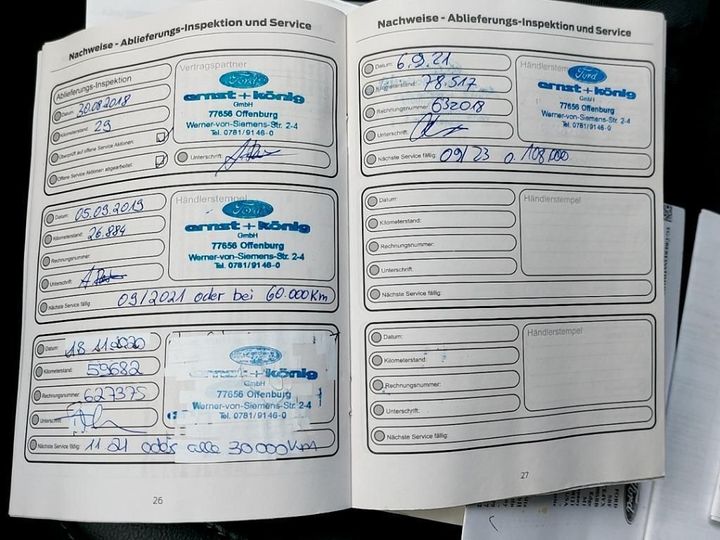 Nachweise - Ablieferungs-Inspektion und Service
Ablieferungs-Inspektion
Datum: 30.08.2018
Kilometerstand: 29
Überprüft auf offene Service Aktionen:
Offene Service Aktionen abgearbeitet:
Vertragspartner
Ford
ernst+könig
GmbH
77656 Offenburg
Werner-von-Siemens-Str. 2-4
Tel. 0781/9146-0
Unterschrift:
Datum: 05.09.2019
Kilometerstand: 26.884
Rechnungsnummer:
Unterschrift:
Nächste Service fällig: 09/2021 oder bei 60.000Km
Händlerstempel
Ford
ernst+könig
GmbH
77656 Offenburg
Werner-von-Siemens-Str. 2-4
Tel. 0781/9146-0
Datum: 18 11 2020
Kilometerstand: 59682
Rechnungsnummer: 627375
Unterschrift:
Nächste Service fällig: 11 21 alle 30000Km
ernst+könig
GmbH
77656 Offenburg
Werner-von-Siemens-Str. 2-4
Tel. 0781/9146-0
26
Nachweise - Ablieferungs-Inspektion und Service
Datum: 6.9.21
Kilometerstand: 78.517
Rechnungsnummer: 632018
Unterschrift:
Nächste Service fällig: 09/23 o. 108.000
Händlerstempel
Ford
ernst+könig
GmbH
77656 Offenburg
Werner-von-Siemens-Str. 2-4
Tel. 0781/9146-0
Datum:
Kilometerstand:
Rechnungsnummer:
Unterschrift:
Nächste Service fällig:
Händlerstempel
Datum:
Kilometerstand:
Rechnungsnummer:
Unterschrift:
Nächste Service fällig:
Händlerstempel
27
Ford